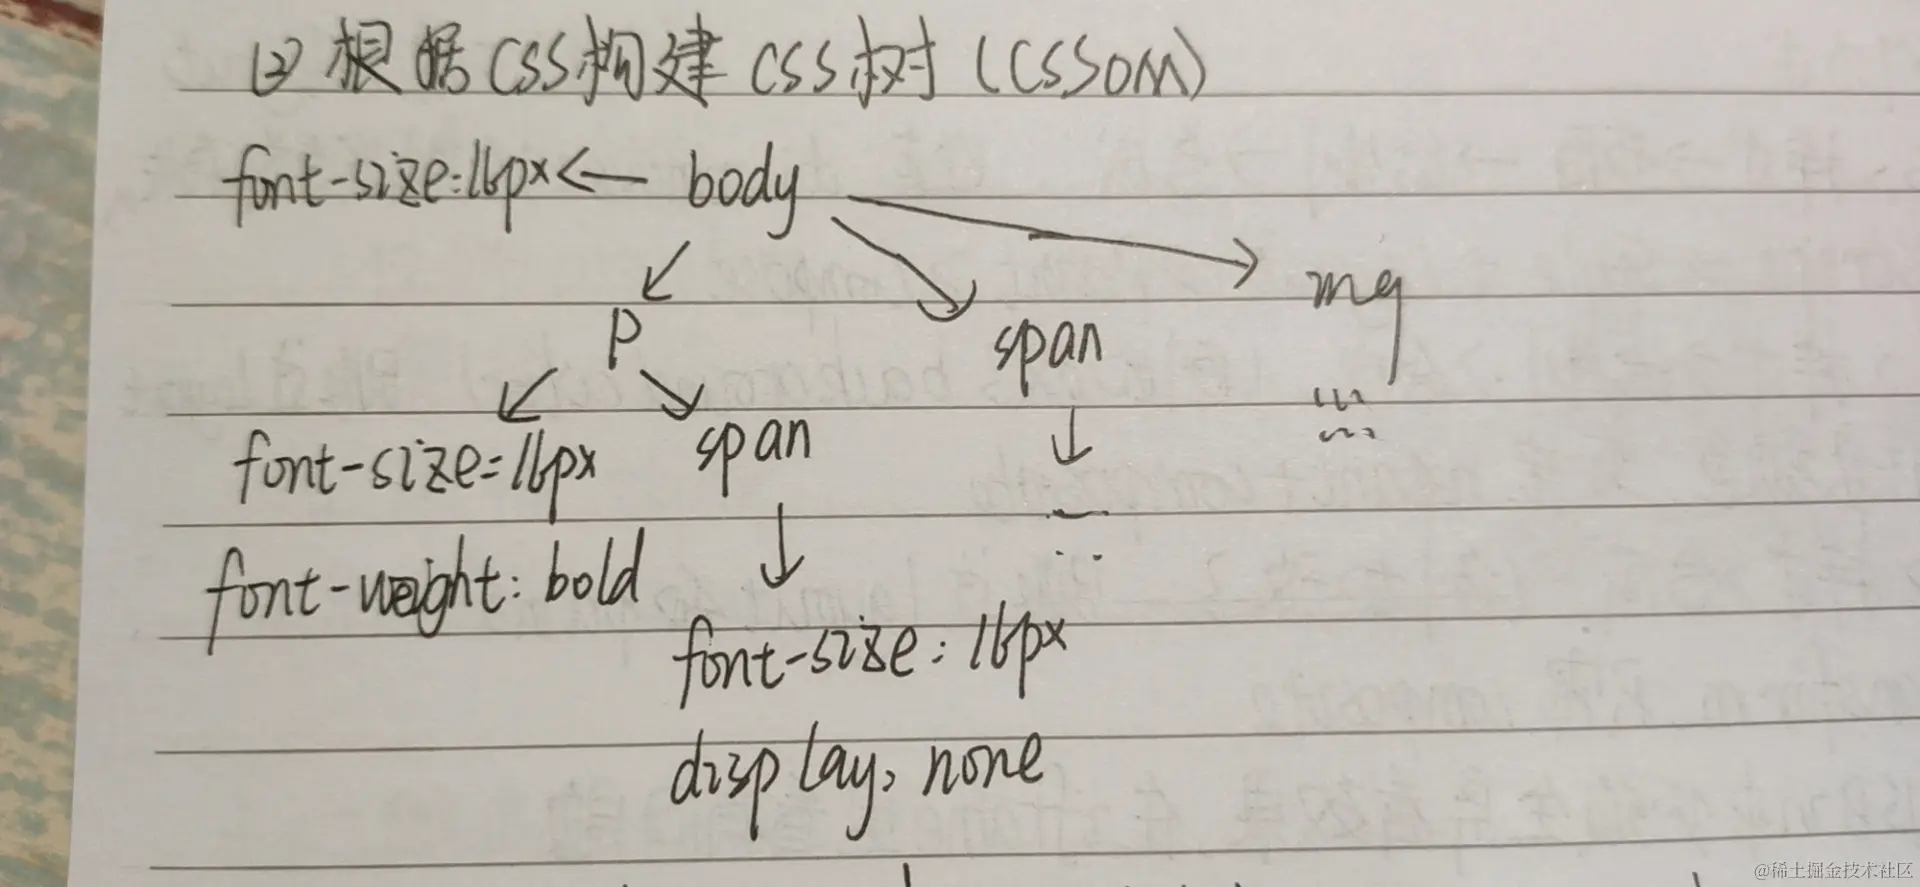 (2) 根据CSS构建CSS树(CSSOM)
font-size:16px ← body
mg
P
span
font-size=16px
span
font-weight: bold
font-size: 16px
display, none
@稀土掘金技术社区